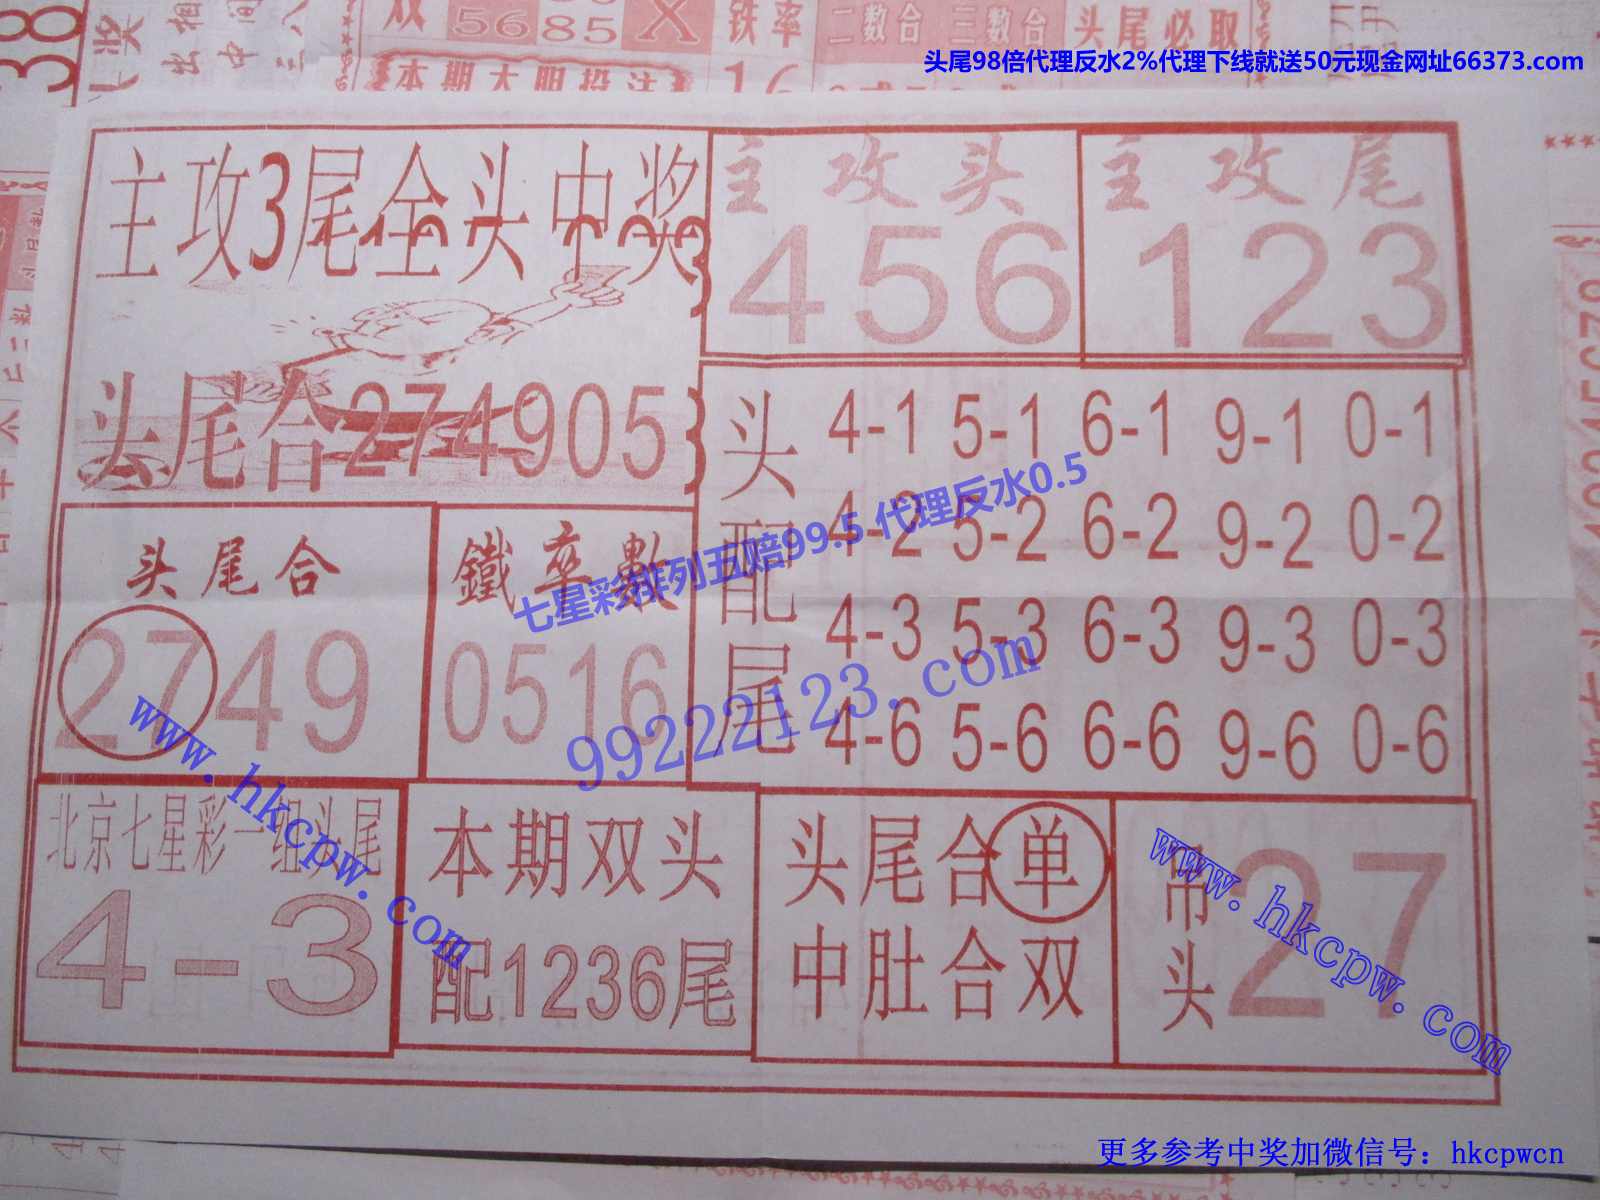 双 5685 X 铁率 二数合 三数合 头尾必取
本期大胆投注
头尾98倍代理反水2%代理下线就送50元现金网址66373.com
主攻3尾全头中奖
头尾合274905
主攻头
456
主攻尾
123
头配尾
4-1 5-1 6-1 9-1 0-1
4-2 5-2 6-2 9-2 0-2
4-3 5-3 6-3 9-3 0-3
4-6 5-6 6-6 9-6 0-6
头尾合
2749
鐵率數
0516
七星彩排列五赔99.5 代理反水0.5
99222123.com
www.hkcpw.com
北京七星彩一组头尾
4-3
本期双头
配1236尾
头尾合单
中肚合双
吊头
27
www.hkcpw.com
更多参考中奖加微信号：hkcpwcn